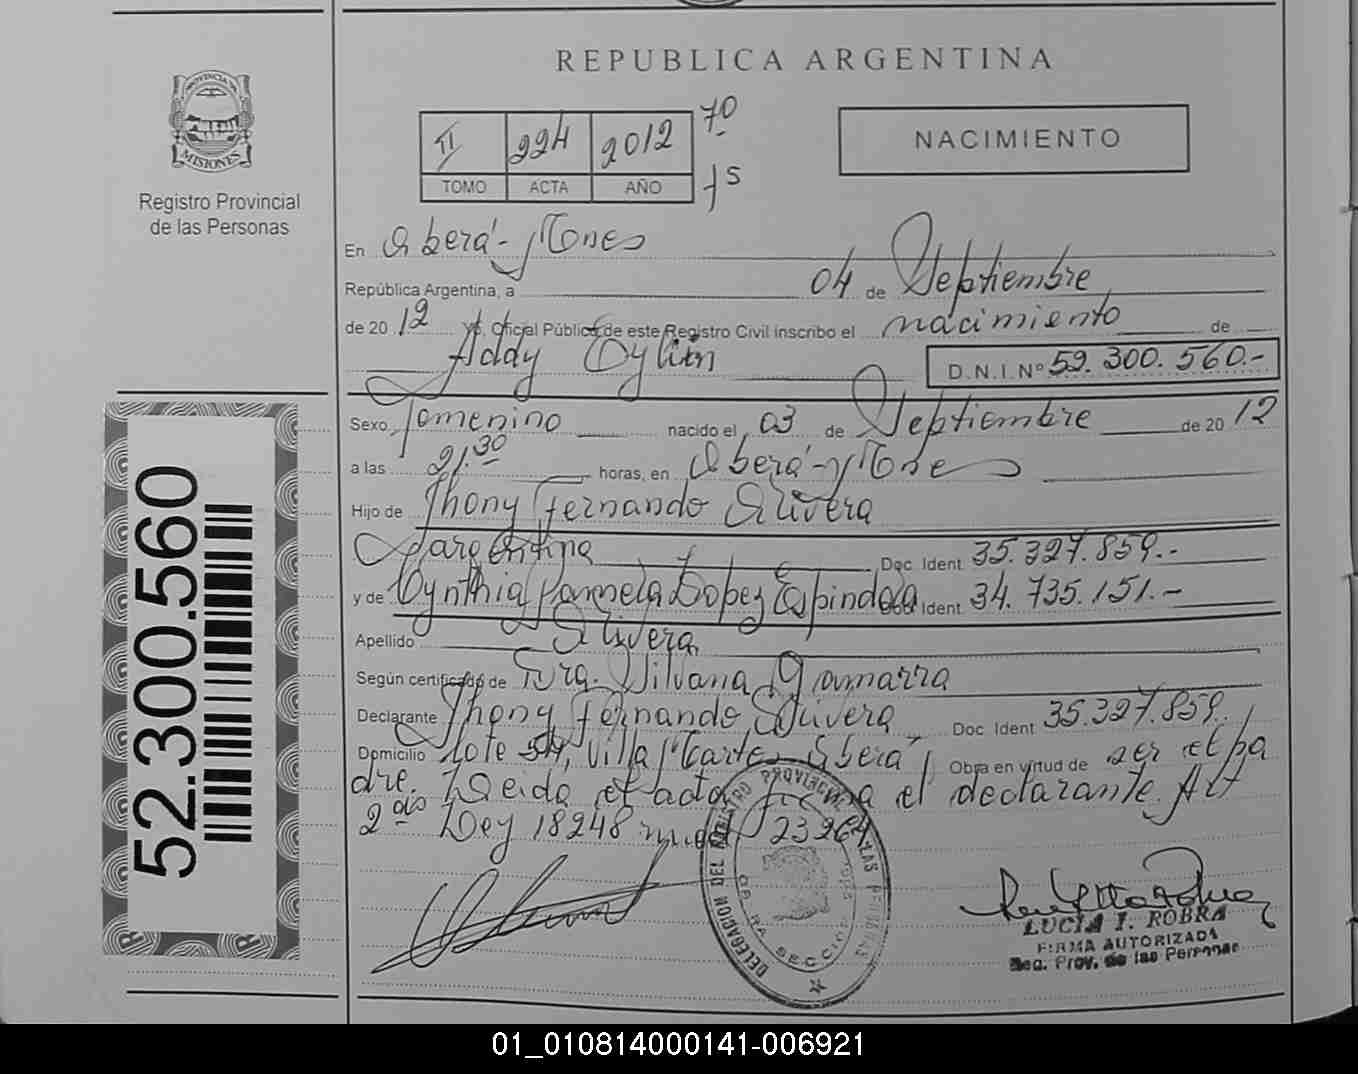 REPUBLICA ARGENTINA
PROVINCIA DE
MISIONES
Registro Provincial
de las Personas
II 224 2012 70
TOMO ACTA AÑO fs
NACIMIENTO
En Oberá - Mones
República Argentina, a 04 de Septiembre
de 20 12 Yo, Oficial Público de este Registro Civil inscribo el nacimiento de
Addy Eylin D.N.I. Nº 52.300.560.-
Sexo femenino nacido el 03 de Septiembre de 20 12
a las 21.30 horas, en Oberá - Mones
Hijo de Jhony Fernando Olivera
argentina Doc. Ident 35.327.859.-
y de Cynthia Pamela Lopez Espindola Doc. Ident 34.735.151.-
Apellido Olivera
Según certificado de Dra. Silvana Gamarra
Declarante Jhony Fernando Olivera Doc. Ident 35.327.859.
Domicilio Lote 54, Villa Oberá Obra en virtud de ser el pa
dre. Leida el acta firma el declarante. Art
2º Ley 18248 23264
52.300.560
DELEGACION DEL REGISTRO PROVINCIAL DE LAS PERSONAS
SECCION
LUCIA I. ROBRA
FIRMA AUTORIZADA
Reg. Prov. de las Personas
01_010814000141-006921